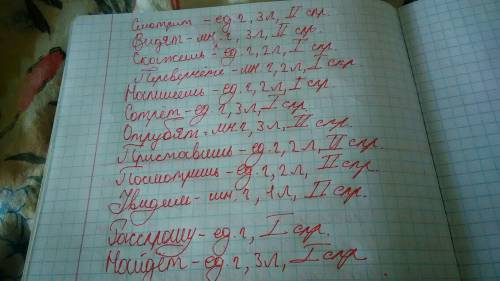 Смотрит - ед.ч, 3л, II спр.
Видят - мн.ч, 3л, II спр.
Скажешь - ед.ч, 2л, I спр.
Перевернёте - мн.ч, 2л, I спр.
Напишешь - ед.ч, 2л, I спр.
Сотрёт - ед.ч, 3л, I спр.
Отрубят - мн.ч, 3л, II спр.
Приставишь - ед.ч, 2л, II спр.
Посмотришь - ед.ч, 2л, II спр.
Увидем - мн.ч, 1л, II спр.
Расспрошу - ед.ч, I спр.
Найдёт - ед.ч, 3л, I спр.